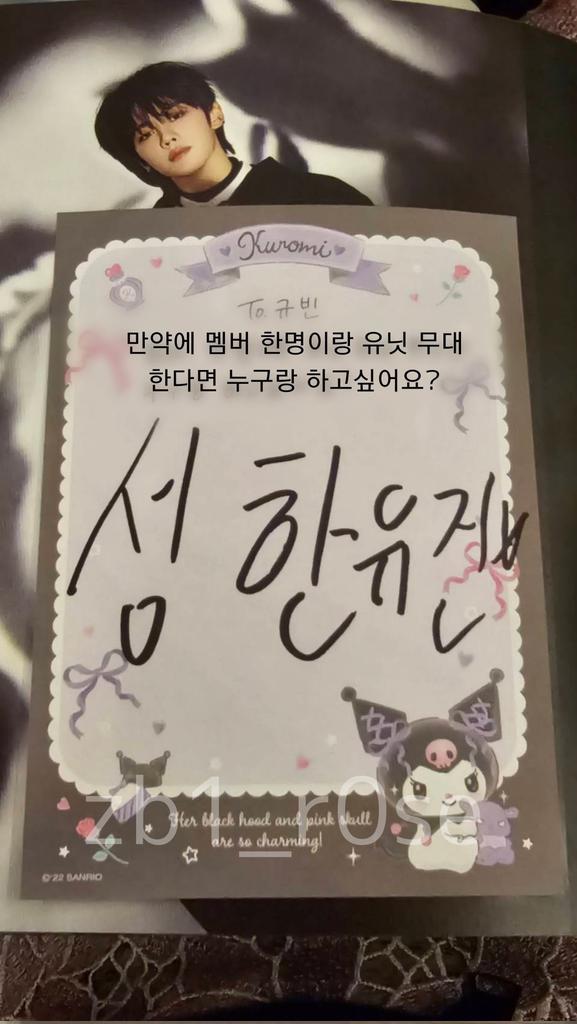 Kuromi
To. 규빈
만약에 멤버 한명이랑 유닛 무대
한다면 누구랑 하고싶어요?
섬 한유진
zb1_r0se
Her black hood and pink skull
are so charming!
©'22 SANRIO